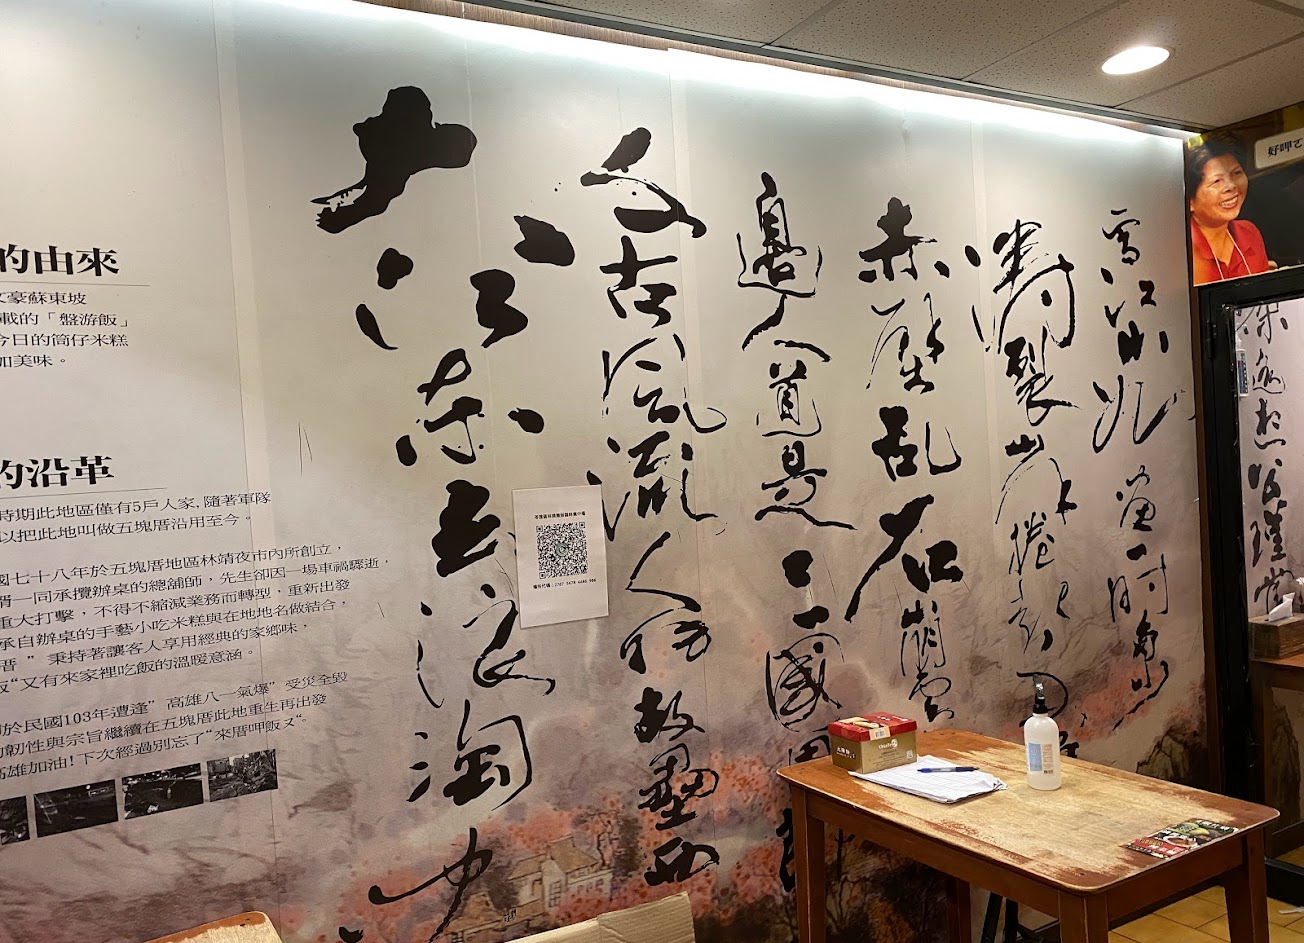 的由來
文豪蘇東坡
載的「盤游飯」
今日的筒仔米糕
加美味。
的沿革
時期此地區僅有5戶人家,隨著軍隊
以把此地叫做五塊厝沿用至今。
國七十八年於五塊厝地區林靖夜市內所創立，
婿一同承攬辦桌的總舖師，先生卻因一場車禍驟逝，
重大打擊，不得不縮減業務而轉型，重新出發
承自辦桌的手藝小吃米糕與在地地名做結合，
厝 ” 秉持著讓客人享用經典的家鄉味，
飯“又有來家裡吃飯的溫暖意涵。
於民國103年遭逢” 高雄八一氣爆” 受災全毀
韌性與宗旨繼續在五塊厝此地重生再出發
高雄加油!下次經過別忘了“來厝呷飯又“。
大江東去浪淘
千古風流人物故壘西
邊人道是三國周
赤壁乱石崩雲
濤裂岸捲起千
雪江山如畫一時多
傑遙想公瑾當
好呷ㄛ